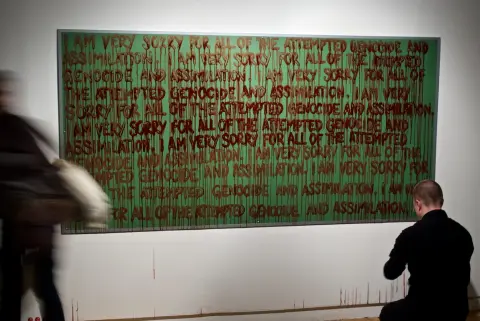 I AM VERY SORRY FOR ALL OF THE ATTEMPTED GENOCIDE AND
ASSIMILATION. I AM VERY SORRY FOR ALL OF THE ATTEMPTED
GENOCIDE AND ASSIMILATION. I AM VERY SORRY FOR ALL OF
THE ATTEMPTED GENOCIDE AND ASSIMILATION. I AM VERY
SORRY FOR ALL OF THE ATTEMPTED GENOCIDE AND ASSIMILATION.
I AM VERY SORRY FOR ALL OF THE ATTEMPTED GENOCIDE AND
ASSIMILATION. I AM VERY SORRY FOR ALL OF THE ATTEMPTED
GENOCIDE AND ASSIMILATION. I AM VERY SORRY FOR ALL OF
THE ATTEMPTED GENOCIDE AND ASSIMILATION. I AM VERY SORRY
FOR ALL OF THE ATTEMPTED GENOCIDE AND ASSIMILATION. I AM
FOR ALL OF THE ATTEMPTED GENOCIDE AND ASSIMILATION.